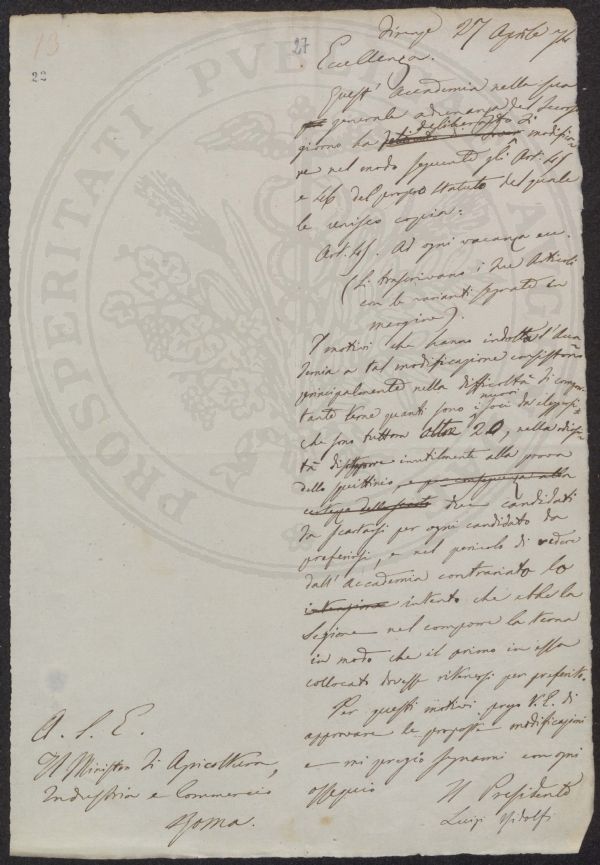 13
22
27
Firenze 27 Aprile 74
Eccellenza.
Quest' Accademia nella sua
generale adunanza de' scorso
giorno ha deliberato di modifica=
re nel modo seguente gli Art. 45
e 46 del proprio Statuto del quale
le unisco copia:
Art. 45. Ad ogni vacanza ecc.
(Si trascrivano i due Articoli
con le varianti segnate in
margine).
I motivi che hanno indotto l'Acca=
demia a tal modificazione consistono
principalmente nella difficoltà di compor
tante terne quanti sono i nuovi soci da eleggersi
che sono tuttora 20, nella
inutilmente alla prova
dello squittinio e per conseguenza alla
due candidati
da scartarsi per ogni candidato da
preferirsi, e nel pericolo di vedere
dall' Accademia contrariato lo
intenzione intento che ebbe la
Sezione nel comporre la terna
in modo che il primo in essa
collocato dovesse ritenersi per preferito.
Per questi motivi prego V.E. di
approvare le proposte modificazioni
e mi pregio segnarmi con ogni
ossequio Il Presidente
Luigi Ridolfi
A. S. E.
Il Ministro di Agricoltura,
Industria e Commercio
Roma.
PROSPERITATI PVBLICAE AVG